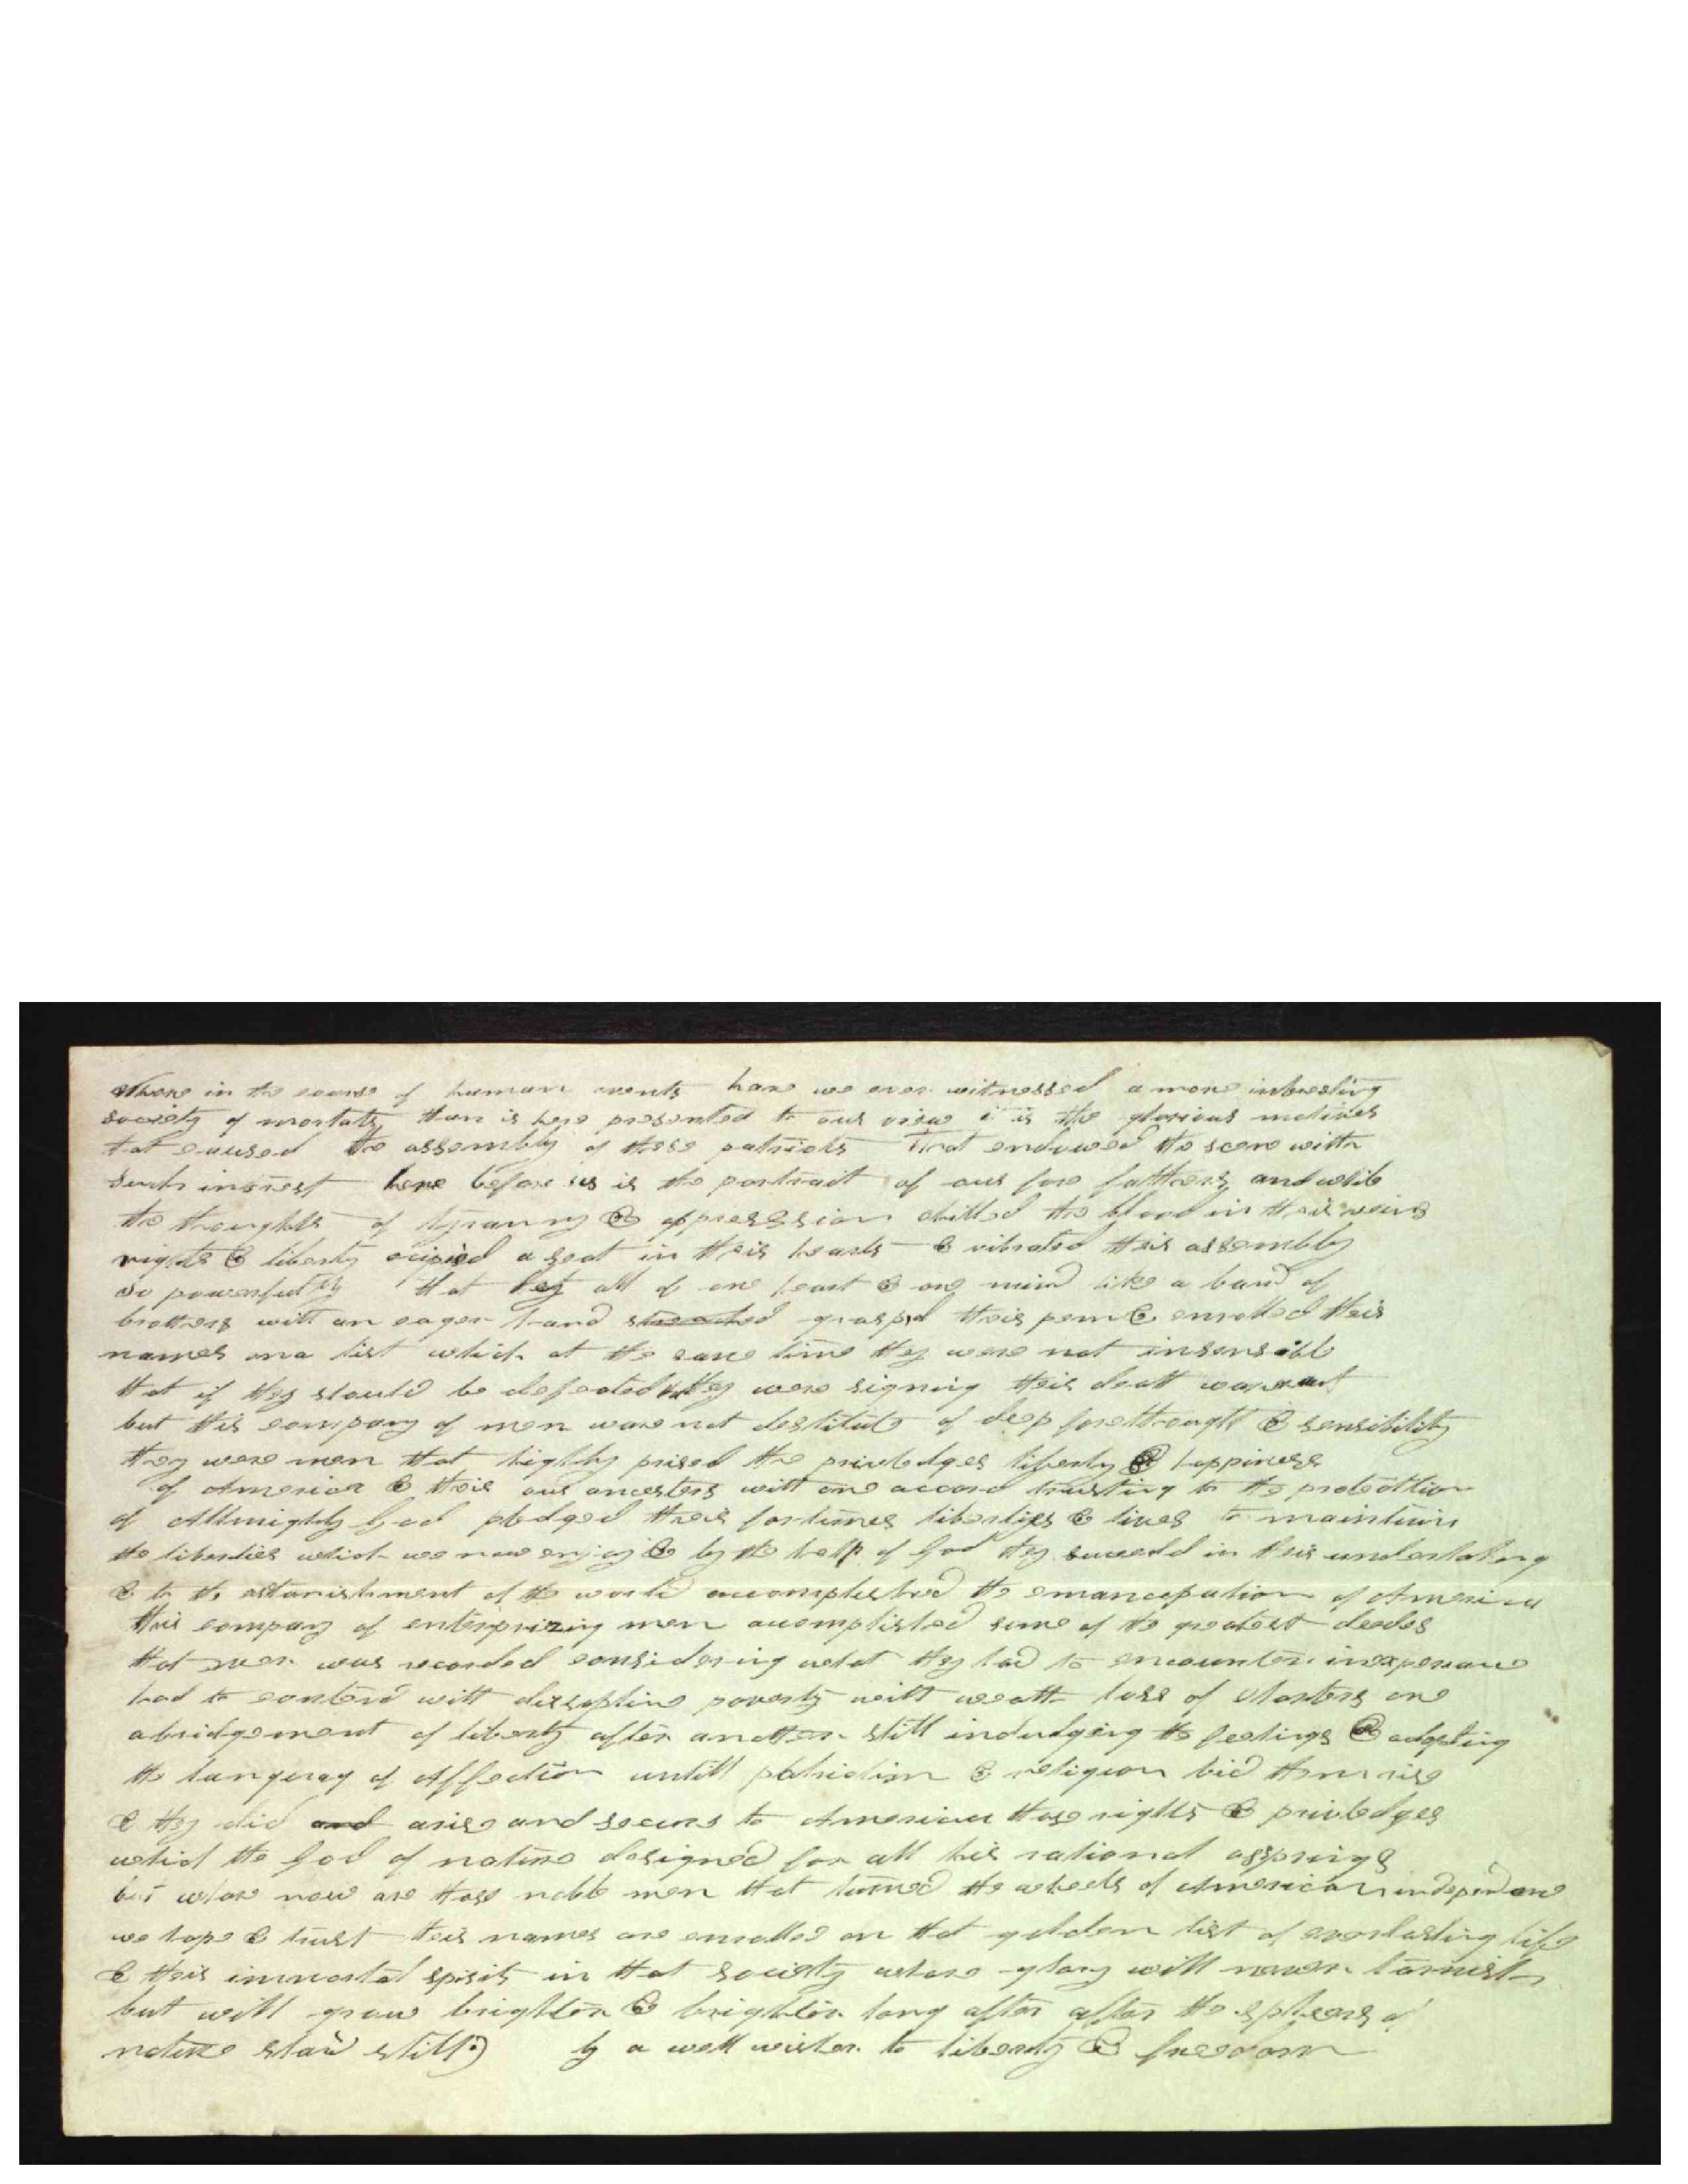 Where in the course of human events have we ever witnessed a more interesting
society of mortals than is here presented to our view i is the glorious motives
that caused the assembly of these patriots That endowed the scene with
such interest here before us is the portrait of our fore fathers, and while
the thoughts of tyranny & oppression chilled the blood in their veins
rights & liberty ocipied a seat in their hearts & vibrated their assembly
so powerfully that they all of one heart & one mind like a band of
brothers with an eager hand graspd their pen & enrolled their
names on a list which at the same time they were not insensible
that if they should be defeated they were signing their death warrant
but this company of men ware not destitute of deep forethought & sensibility
they were men that highly prised the priviledges liberty & happiness
of America & their our ancesters with one accord trusting to the protecttion
of Allmighty God pledged their fortunes liberties & lives to maintain
the liberties which we now enjoy & by the help of God they succeedd in their undertaking
& to the astonishment of the world accomplished the emancepation of America
this company of enterprizing men acomplished some of the greatest deedes
that ever was recorded considering what they had to encounter. inexperance
had to contend with dissipline poverty with wealth loss of Charters one
abridgement of liberty after another still indudgeing the feelings & adopting
the languag of Affection untill patriotism & religion bid them rise
& they did and arise and secure to American those rights & priviledges
which the God of nature designed for all his rational offsprings
but whare now are those noble men that turned the wheels of American independance
we hope & trust their names are enrolled on that golden list of everlasting life
& their immortal spirits in that society whose glory will never tarnish
but will grow brighter & brighter long after after the spheres of
nature stand still.) by a well wisher to liberty & freedom